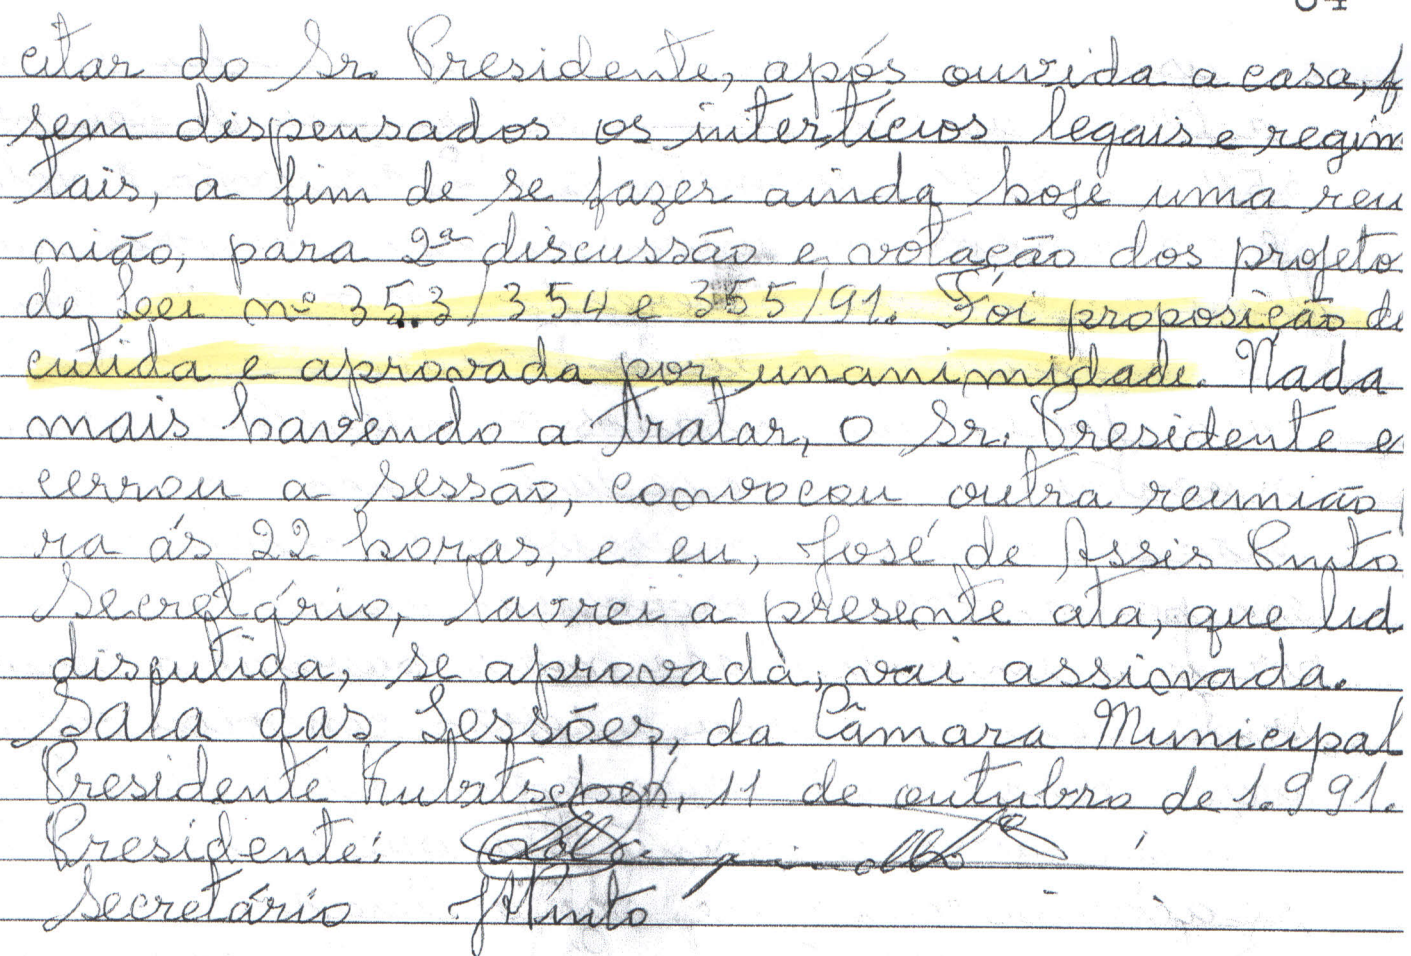 04
citar do Sr. Presidente, após ouvida a casa, f
sem dispensados os intertícios legais e regim
tais, a fim de se fazer ainda hoje uma reu
nião, para 2ª discussão e votação dos projeto
de Lei nº 353/354 e 355/91. Foi proposição di
cutida e aprovada por unanimidade. Nada
mais havendo a tratar, o Sr. Presidente e
cerrou a sessão, convocou outra reunião p
ra ás 22 horas, e eu, José de Assis Pinto
Secretário, lavrei a presente ata, que lid
discutida, se aprovada, vai assinada.
Sala das Sessões, da Câmara Municipal
Presidente Kubitschek, 11 de outubro de 1.991.
Presidente:
Secretário JAPinto